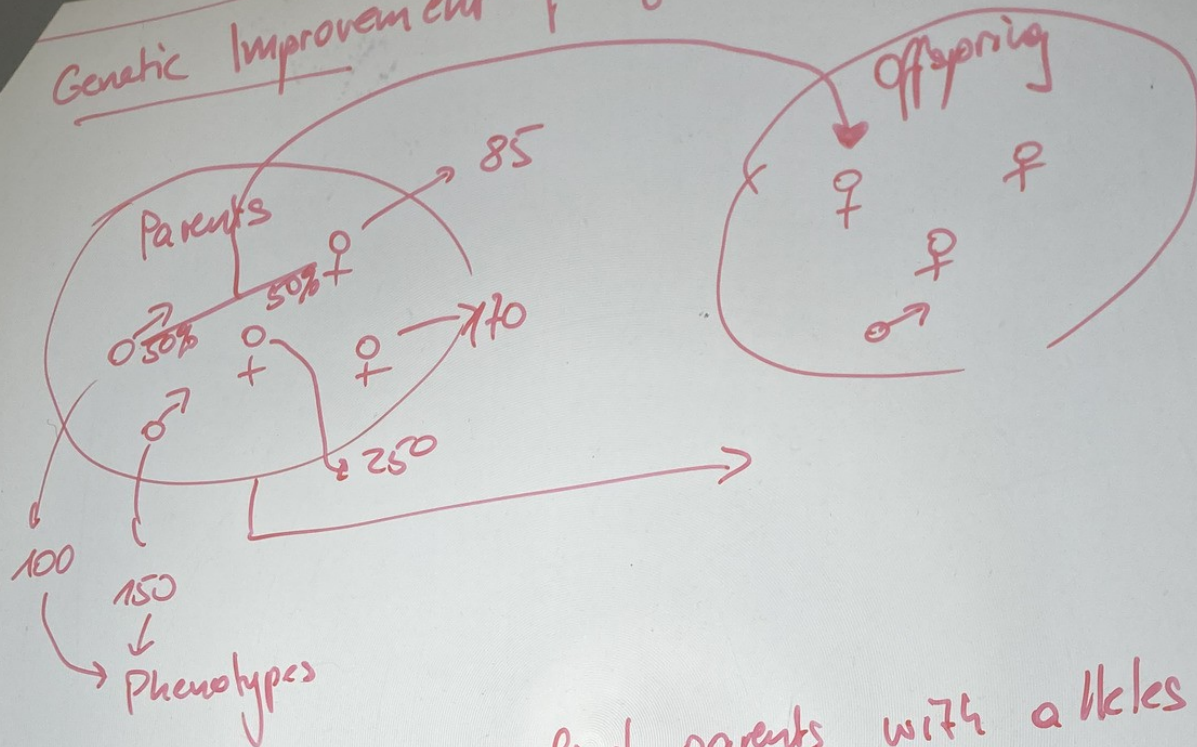 Genetic Improvement
Offspring
85
Parents
50%
50%
170
250
100
150
Phenotypes
parents with alleles